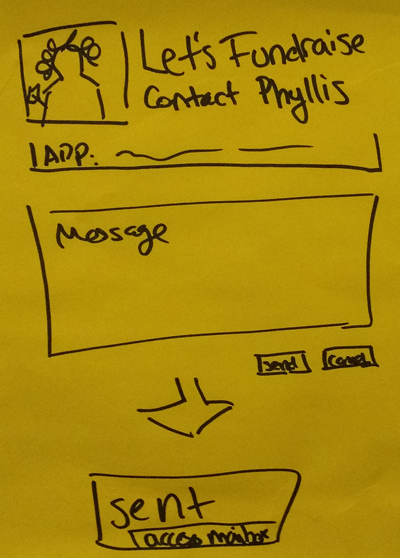 Let's Fundraise
Contact Phyllis
ADD:
Message
send cancel
sent
access mailbox